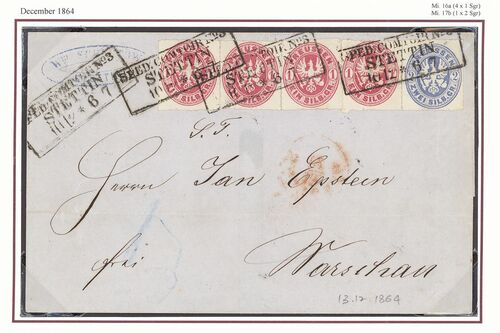 December 1864
Mi. 16a (4 x 1 Sgr)
Mi. 17b (1 x 2 Sgr)
SPED. COMTOIR. No 3
STETTIN
10 12 * 6-7
SPED. COMTOIR. No 3
STETTIN
10 12 * 6-7
STETTIN
SPED. COMTOIR. No 3
STETTIN
10 12 * 6-7
PREUSSEN
EIN SILB. GR.
ZWEI SILB. GR.
S. T.
Herrn Jan Epstein
frei Warschau
13.12.1864